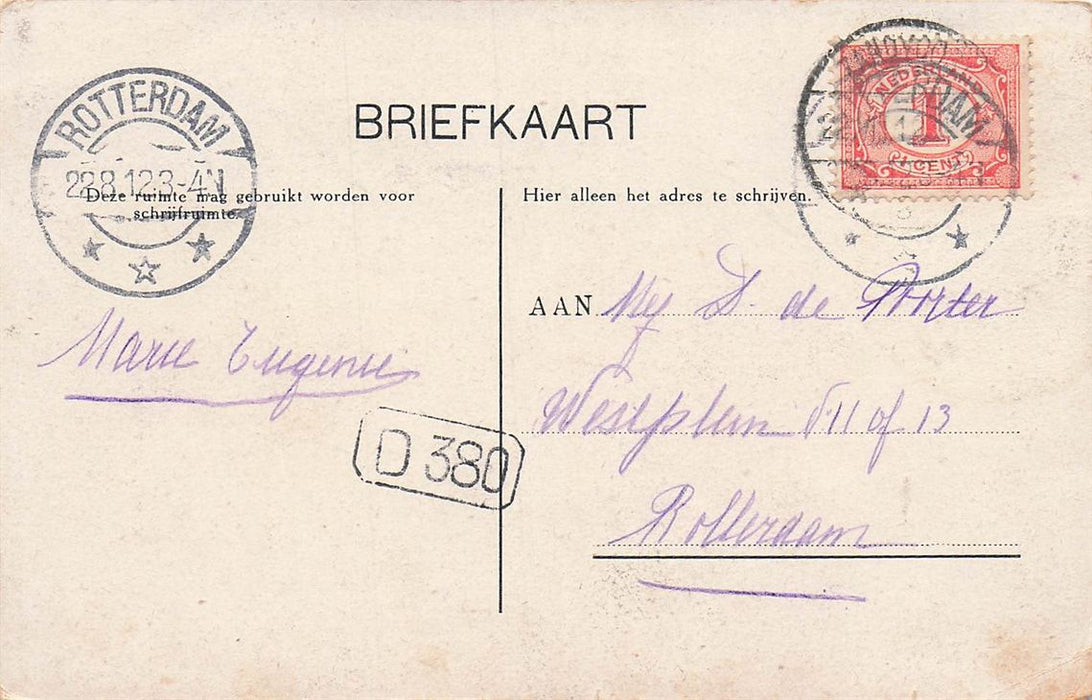 ROTTERDAM
22.8.12.3-4N
BRIEFKAART
NEDERLAND
1
1 CENT
Deze ruimte mag gebruikt worden voor
schrijfruimte.
Hier alleen het adres te schrijven.
AAN Mej D. de Porter
Westplein 11 of 13
Rotterdam
Marie Eugenie
D 380